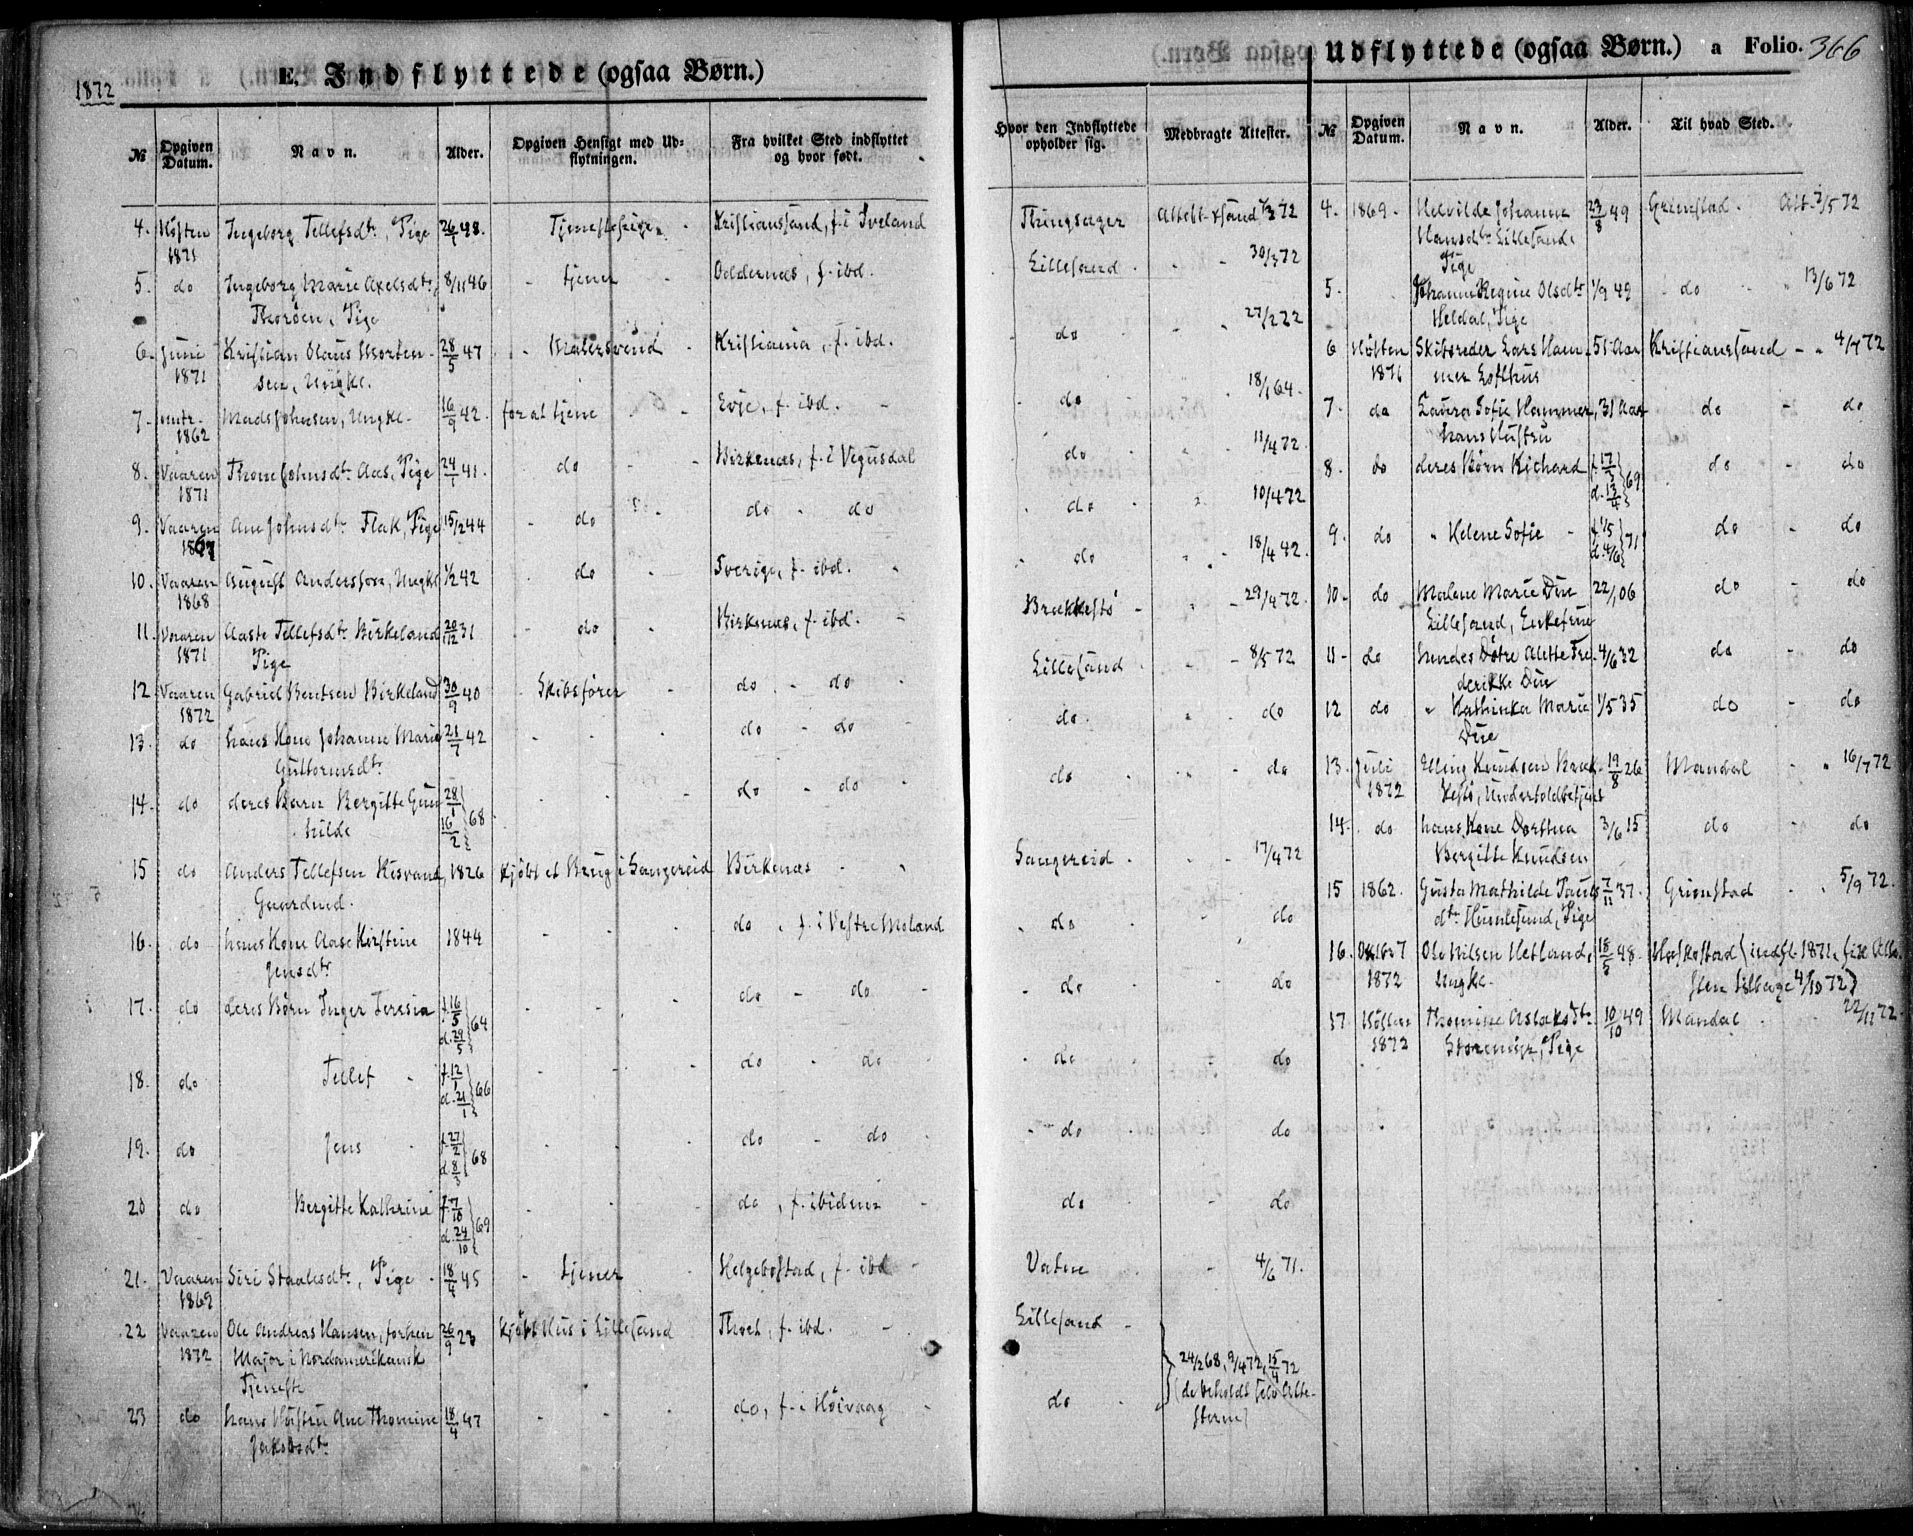 1872
E. Indflyttede (ogsaa Børn.)
№
Opgiven Datum.
Navn.
Alder.
Opgiven Hensigt med Udflytningen.
Fra hvilket Sted indflyttet og hvor født.
Hvor den Indflyttede opholder sig.
Medbragte Attester.
4. Høsten Ingeborg Tellefsdtr, Pige 26/1 48. Tjenestepige. Kristianssand, f. i Iveland Thingsager Attest Xsand 72
1871
5. do Ingeborg Marie Axelsdtr, 8/11 46 tjener Oddernæs, f. ibd. Lillesand 30/3 72
Thorøen, Pige
6. Juni Kristian Olaus Morten- 28/5 47 Malersvend Kristiania, f. ibd. do 27/2 72
1871 sen, Ungk.
7. 1862 Mads Johnsen, Ungk. 16/9 42. for at tjene Evje, f. ibd. do 18/1 64.
8. Vaaren Thone Johnsdtr Aas, Pige 24/1 41. do Birkenæs, f. i Vegusdal do 11/4 72
1871
9. Vaaren Ane Johnsdtr Flak, Pige 15/2 44 do do do do 10/4 72
1867
10. Vaaren August Andersson, Ungk. 1/2 42 do Sverige, f. ibd. do 18/4 42.
1868
11. Vaaren Aaste Tellefsdtr Birkeland 20/12 31 do Birkenæs, f. ibd. Brækkestø 29/4 72
1871 Pige
12. Vaaren Gabriel Bentsen Birkeland 30/9 40 Skibsfører do do Lillesand 8/5 72
1872
13. do hans Kone Johanne Marie 21/7 42 do do do do
Guttormsdtr
14. do deres Barn Bergitte Gun- 28/1 do do do do
hilde 16/2 68
15 do Anders Tellefsen Risvand, 1826 Kjøbt et Brug i Sangereid Birkenæs Sangereid 17/4 72
Gaardmd.
16. do hans Kone Aase Kirstine 1844 do f. i Vestre Moland do do
Jensdtr
17. do deres Børn Inger Teresia f. 16/5 d. 29/5 64 do do do do
18. do Tellef f. 12/1 d. 21/1 66 do do do do
19. do Jens f. 27/2 d. 8/3 68 do do do do
20 do Bergitte Kathrine f. 7/10 d. 24/10 69 do, f. ibidem do do
21. Vaaren Siri Staalesdtr, Pige 18/4 45 tjener Helgebostad, f. ibd Vatne 4/6 71.
1869
22 Vaaren Ole Andreas Hansen, forhen 26/9 23 Kjøbt Hus i Lillesand Thvet, f. ibd. Lillesand
1872 Major i Nordamerikansk 24/2 68, 9/4 72, 15/4 72
Tjeneste (de beholdt selv Atte-
23 do hans Hustru Ane Thomine 18/4 47 do, f. i Høivaag do sterne)
Jakobsdtr
Udflyttede (ogsaa Børn.) a Folio. 366
№
Opgiven Datum.
Navn.
Alder.
Til hvad Sted.
4. 1869. Helvilde Johanne 23/8 49 Grimstad. Att. 3/5 72
Hansdtr Lillesand
Pige
5. Johanne Regine Olsdtr 1/9 49 do 13/6 72
Heldal, Pige
6 Høsten Skibsreder Lars Ham- 51 Aar Kristianssand 4/7 72
1871 mer Lofthus
7. do Laura Sofie Hammer, 31 Aar do do
hans Hustru
8. do deres Børn Richard f. 17/3 d. 13/4 69 do do
9. do " Helene Sofie f. 1/5 d. 4/6 71 do do
10. do Malene Marie Due 22/1 06 do do
Lillesand, Enkefrue
11. do hendes Døtre Alette Fre- 4/6 32 do do
derikke Due
12 do " Kathinka Marie 1/5 35 do do
Due
13. Juli Elling Knudsen Bræk- 19/8 26 Mandal 16/7 72
1872 kestø, Undertoldbetjent
14. do hans Kone Dorthea 3/6 15 do do
Bergitte Knudsen
15 1862. Gusta Mathilde Pauls- 7/11 37. Grimstad 5/9 72.
dtr Humlesund, Pige
16. Oktbr 7 Ole Nilsen Hetland, 18/5 48. (indfl. 1871,
1872 Ungk. tilbage 4/10 72)
17 Høsten Thomine Aslaksdtr 10/10 49 Mandal 22/11 72
1872 Pige